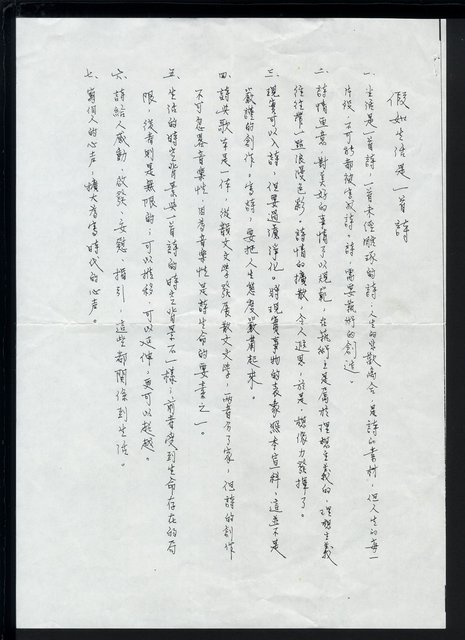 假如生活是一首詩
一、生活是一首詩，一首未經雕琢的詩；人生的悲歡離合，是詩的素材，但人生的每一
片段，不可能都被寫成詩，詩，需要藝術的創造。
二、詩情畫意，對美好的事情予以規範，在藝術上是屬於理想主義的，理想主義
往往帶一點浪漫色彩。詩情的擴散，令人遐思，於是，想像力發揮了。
三、現實可以入詩，但要過濾淨化。將現實事物的表象照本宣科，這並不是
嚴謹的創作。寫詩，要把人生態度嚴肅起來。
四、詩與歌本是一体，從韻文文學發展散文文學，兩者分了家，但詩的創作
不可忽略音樂性，因為音樂性是詩生命的要素之一。
五、生活的時空背景與一首詩的時空背景不一樣；前者受到生命存在的局
限，後者則是無限的；可以推移，可以延伸，更可以超越。
六、詩給人感動、啟發、安慰、指引，這些都關係到生活。
七、寫個人的心声，擴大為寫時代的心声。